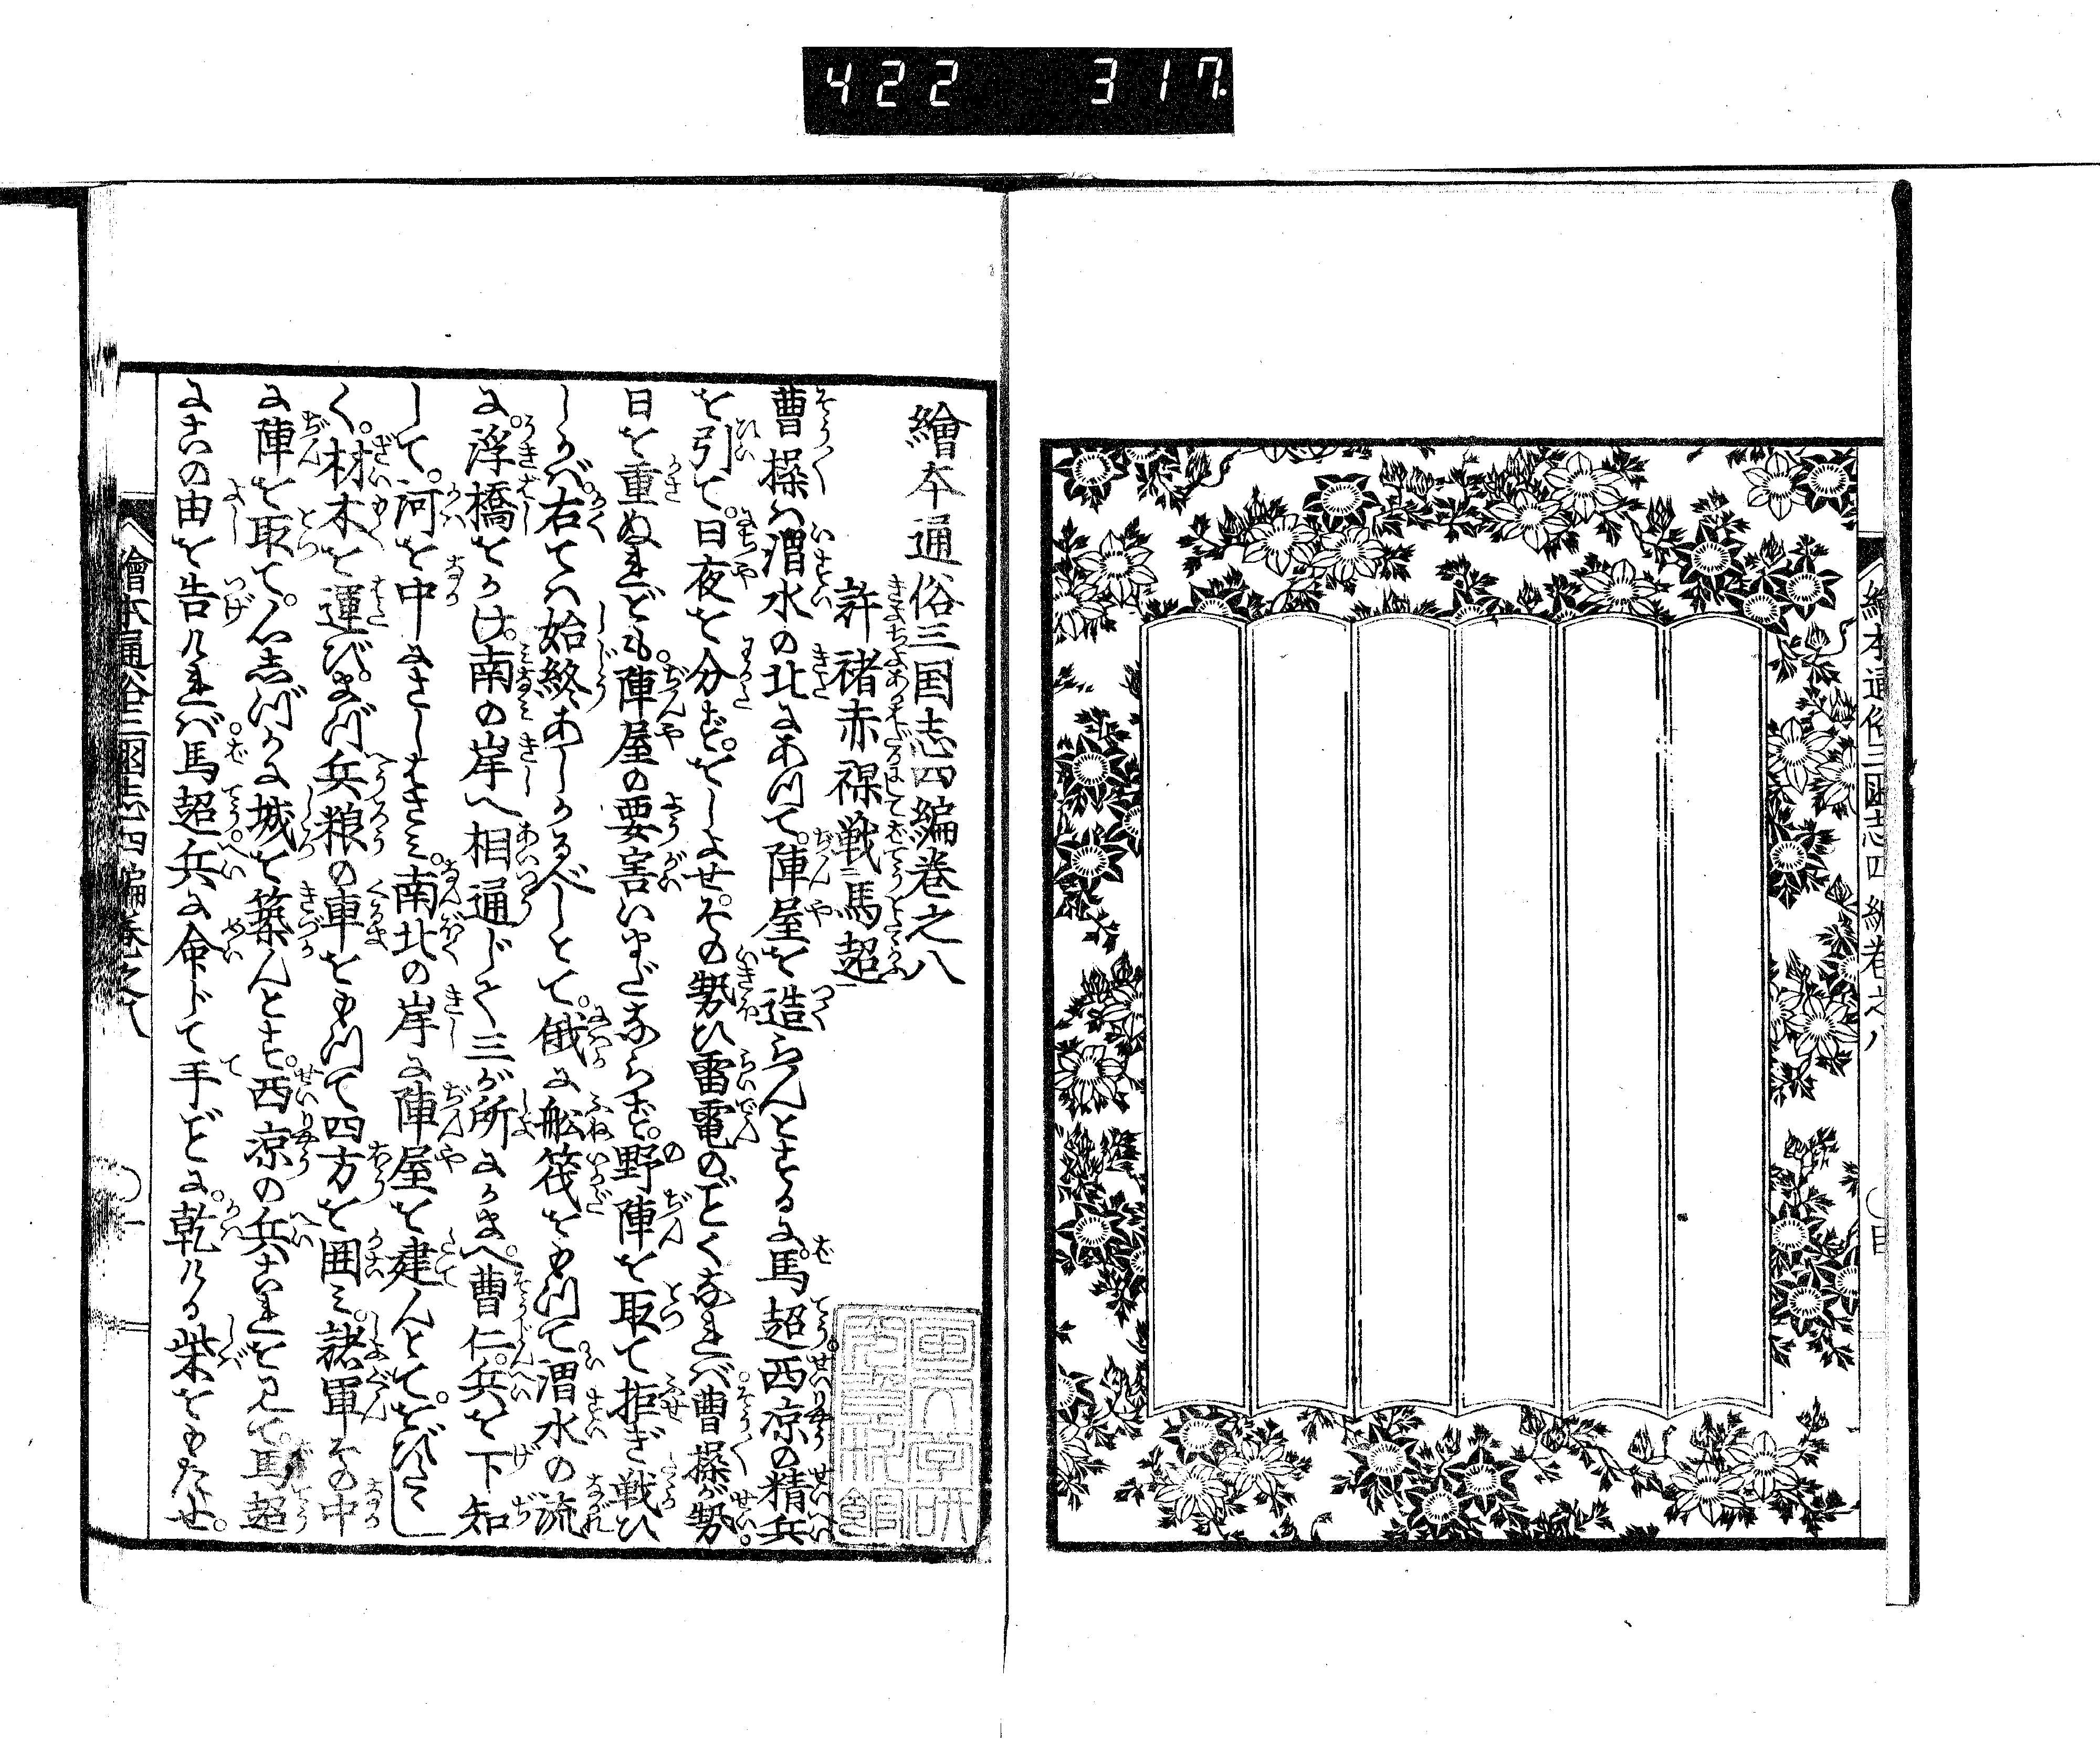 422 317.
繪本通俗三国志四編卷之八
目
繪本通俗三国志四編卷之八
許褚赤裸戦馬超
曹操ハ渭水の北にあつて。陣屋を造らんとするに。馬超西凉の精兵
を引て。日夜を分ず。をしよせ。その勢ひ雷電のごとくなれバ。曹操が勢
日を重ぬれども。陣屋の要害いまだならず。野陣を取て拒ぎ戦ひ
しかバ。右てハ始終あしかるべしとて。俄に舩筏をもつて。渭水の流
に。浮橋をかけ。南の岸へ相通じて三が所にかまへ。曹仁。兵を下知
して。河を中にさしはさミ。南北の岸に陣屋を建んとて。をびたゝし
く。材木を運び。まづ兵粮の車をもつて四方を囲ミ。諸軍その中
に陣を取て。心しづかに城を築んとす。西凉の兵これを見て。馬超
にこの由を告けれバ。馬超。兵に命じて手ごとに。乾ける柴をもたせ。
繪本通俗三国志四編卷之八
一